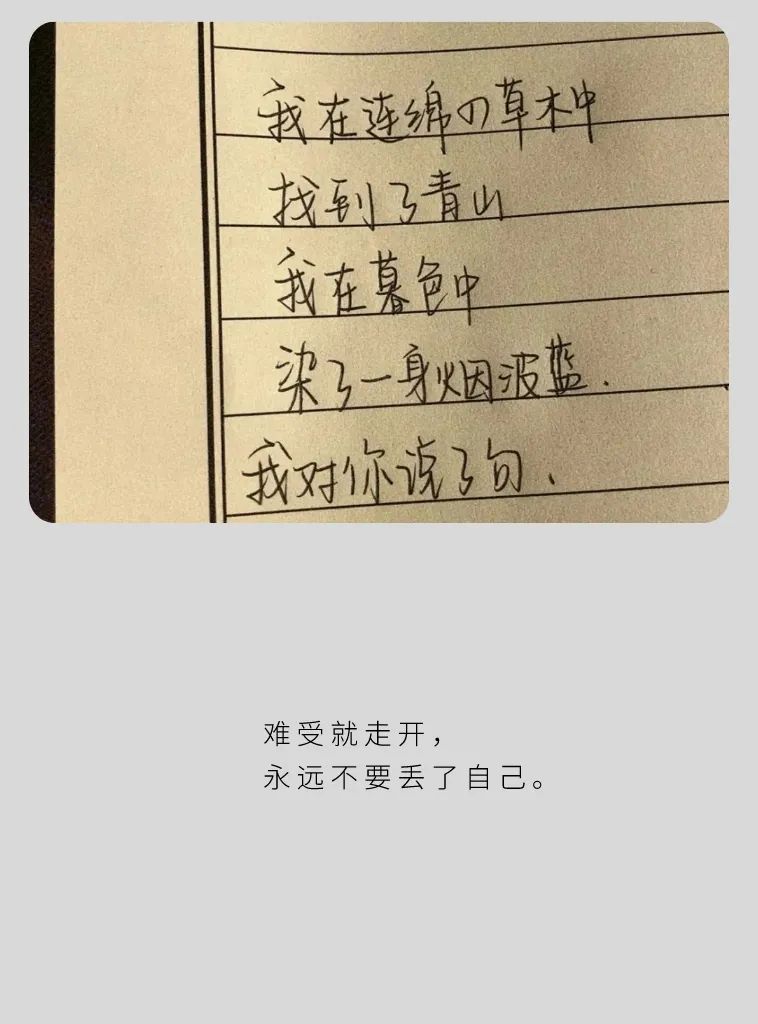 我在连绵の草木中
找到了青山
我在暮色中
染了一身烟波蓝.
我对你说了句、
难受就走开，
永远不要丢了自己。